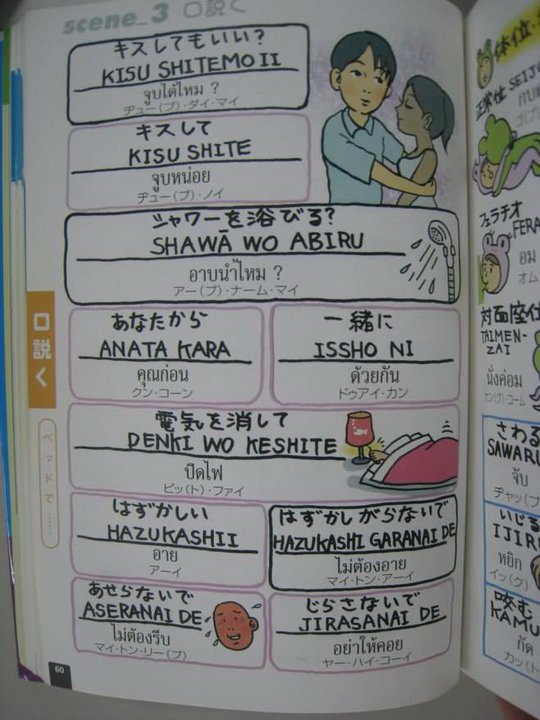 scene_3 口説く
キスしてもいい?
KISU SHITEMO II
จูบได้ไหม ?
ヂュー(プ)・ダイ・マイ
キスして
KISU SHITE
จูบหน่อย
ヂュー(プ)・ノイ
シャワーを浴びる?
SHAWĀ WO ABIRU
อาบน้ำไหม ?
アー(プ)・ナーム・マイ
あなたから
ANATA KARA
คุณก่อน
クン・コーン
一緒に
ISSHO NI
ด้วยกัน
ドゥアイ・カン
電気を消して
DENKI WO KESHITE
ปิดไฟ
ピッ(ト)・ファイ
はずかしい
HAZUKASHII
อาย
アーイ
はずかしがらないで
HAZUKASHI GARANAI DE
ไม่ต้องอาย
マイ・トン・アーイ
あせらないで
ASERANAI DE
ไม่ต้องรีบ
マイ・トン・リー(プ)
じらさないで
JIRASANAI DE
อย่าให้คอย
ヤー・ハイ・コーイ
口説く
ベッドで……
60
体位
正常位 SEIJO
フェラチオ
FERA
อม
オム
対面座位
TAIMEN-
ZAI
นั่งค่อม
さわる
SAWARU
จับ
チャッ(プ
いじる
IJIRU
หยิก
イッ(ク)
咬む
KAMU
กัด
カッ(ト